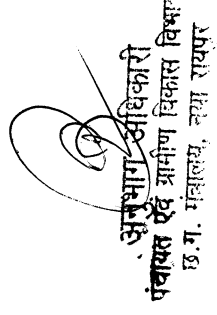 अनुभाग अधिकारी
पंचायत एवं ग्रामीण विकास विभाग
छ.ग. मंत्रालय, नया रायपुर